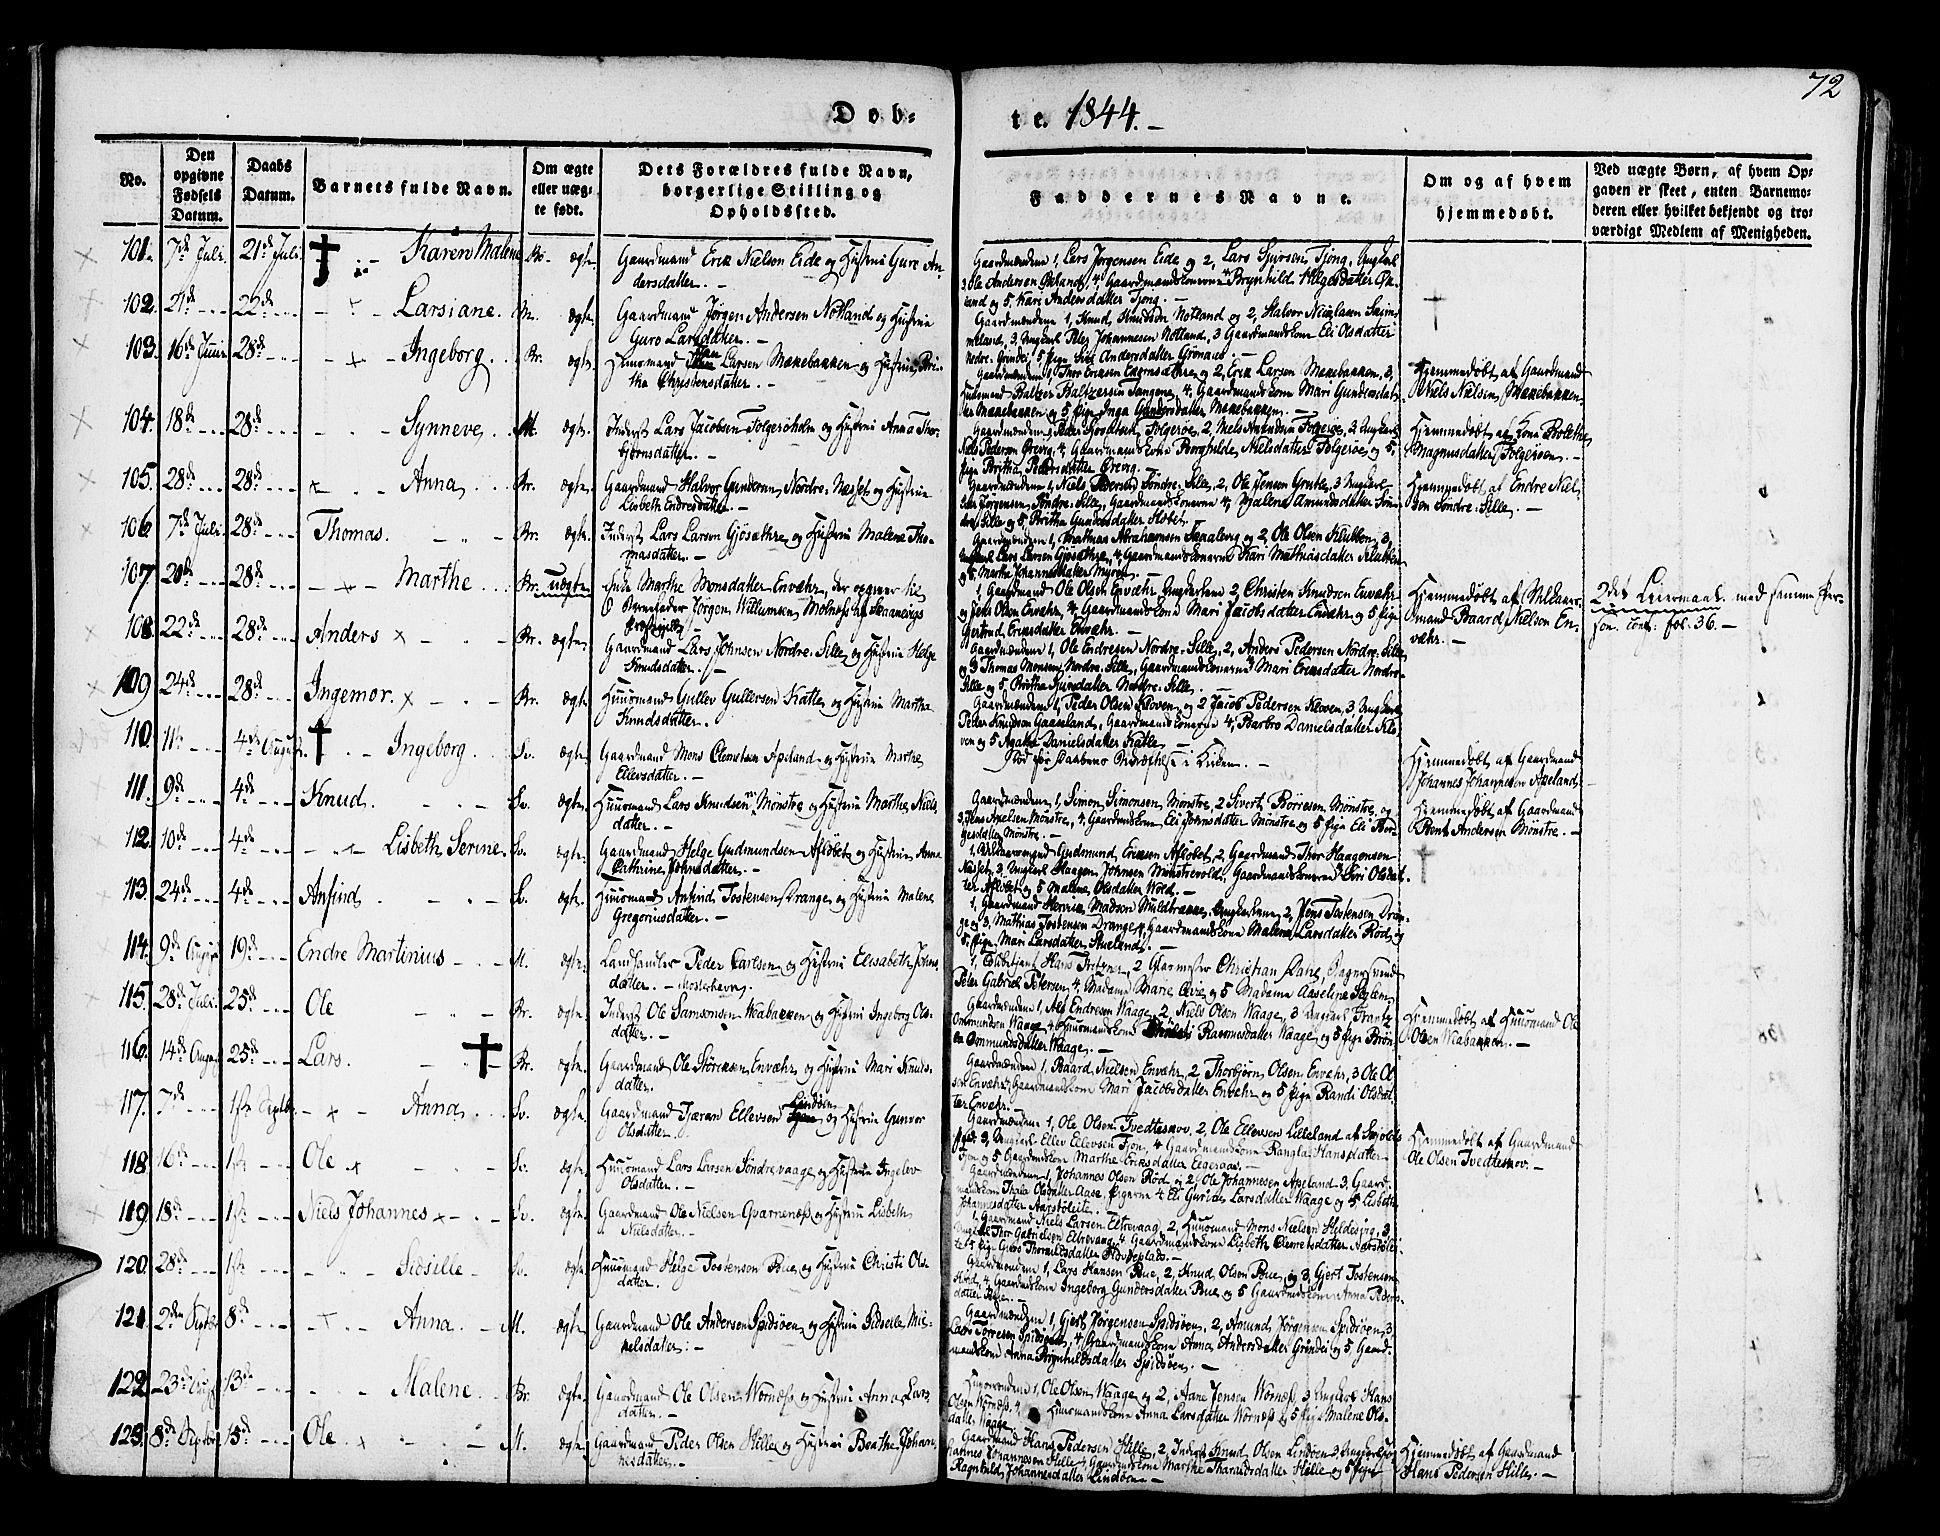 72
Døb-
te. 1844. –
No.
Den opgivne Fødsels Datum.
Daabs Datum.
Barnets fulde Navn.
Om ægte eller uæg- te født.
Dets Forældres fulde Navn, borgerlige Stilling og Opholdssted.
Faddernes Navne.
Om og af hvem hjemmedøbt.
Ved uægte Børn, af hvem Op- gaven er skeet, enten Barnemo- deren eller hvilket bekjendt og tro- værdigt Medlem af Menigheden.
101. 7de Juli. 21de Juli. Karen Malene Br. ægte. Gaardmand Erik Nielsen Eide og Hustrue Guro An-
dersdatter. –
Gaardmændene 1, Lars Jørgensen Eide og 2, Lars Sjursen Tjong, Ungkarl
3, Ole Andersen Økland, 4 Gaardmandskonerne Brynhild Helgesdatter Øk-
land og 5 Kari Andersdatter Tjong. –
102. 21de 22de Larsiane. Br. ægte. Gaardmand Jørgen Andersen Notland og Hustrue
Guro Larsdatter. –
Gaardmændene 1, Knud Knudsen Notland og 2, Halvor Nicolasen Seim,
3, Ungkarl Peter Johannesen Notland, 3 Gaardmandskone Eli Olsdatter
Nordre-Grindei, 5 Pige Siri Andersdatter Grønaas. –
103. 16de Juni 28de Ingeborg. Br. ægte. Huusmand Larsen Mækebakken og Hustrue Bri-
tha Christensdatter. –
Gaardmændene 1, Thor Eriksen og 2, Erik Larsen Mækebakken, 3,
Huusmand Baltzer Baltzersen Tangene, 4, Gaardmandskone Mari Gundersdat-
ter Mækebakken og 5 Pige Inga Gundersdatter Mækebakken. –
Hjemmedøbt af Gaardmand
Niels Nielsen Mækebakken.
104. 18de 28de Synneve. M. ægte. Inderst Lars Jacobsen Folgerøholm og Hustrue Anna Thor-
bjørnsdatter. –
Niels Pedersen Ørevig, 4 Gaardmandskone Borghilde Nielsdatter Folgerøe og 5,
Pige Britha Pedersdatter Ørevig.
Hjemmedøbt af Kone Bolethe
Magnusdatter Folgerøen. –
105. 28de 28de Anna. Br. ægte. Gaardmand Halvor Gundersen Nordre-Næsset og Hustrue
Lisbeth Endresdatter. –
Gaardmændene 1, Niels Søndre-Sille, 2, Ole Jensen Grutle, 3 Ungkarl
Jørgensen Søndre-Sille, Gaardmandskonerne 4, Malene Amundsdatter Søn-
dre-Sille og 5, Britha Gundersdatter
Hjemmedøbt af Endre Niel-
sen Søndre-Sille. –
106. 7de Juli. 28de Thomas. Br. ægte. Inderst Lars Larsen Gjøsæthre og Hustrue Malene Tho-
masdatter. –
Gaardmændene 1, Mathias Abrahamsen Skaalevig og 2, Ole Olsen Klubben, 3,
Ungkarl Lars Larsen Gjøsæthre, 4 Gaardmandskonerne Kari Mathiasdatter Klubben
og 5, Marthe Johannesdatter
107. 20de 28de Marthe Br. uægte. Enke Marthe Monsdatter Enværn, der opgiver til
Barnefader Jørgen Willumsen af Skaanevigs
Præstegield
1, Gaardmand Ole Olsen Enværn, Ungkarlene 2, Christen Knudsen Enværn
og Jens Olsen Enværn, 4 Gaardmandskone Mari Jacobsdatter Enværn og 5 Pige
Gertrud Eriksdatter Enværn. –
Hjemmedøbt af
mand Baard Nielsen En-
værn. –
2det Leiermaal med samme Per-
son. conf: fol: 36. –
108. 22de 28de Anders Br. ægte. Gaardmand Lars Johnsen Nordre-Sille og Hustrue Helge
Knudsdatter. –
Gaardmændene 1, Ole Endresen Nordre-Sille, 2, Anders Pedersen Nordre-Sille
og 3 Thomas Monsen Nordre-Sille, Gaardmandskonerne Mari Eriksdatter Nordre-
Sille og 5, Britha Sjursdatter Nordre-Sille. –
109 24de 28de Ingemor. Br. ægte. Huusmand Gullev Gullevsen Katle og Hustrue Martha
Knudsdatter. –
Gaardmændene 1, Peder Olsen Kloven og 2 Jacob Pedersen Kloven, 3 Ungkarl
Peter Knudsen Gaaseland, Gaardmandskonerne 4, Barbro Danielsdatter Klo-
ven og 5 Agathe Danielsdatter Katle. –
110. 11te 4de August Ingeborg Sv. ægte. Gaardmand Mons Clemetsen Apeland og Hustrue Marthe
Ellevsdatter. –
Død før Daabens Bekræftelse i Kirken. –
Hjemmedøbt af Gaardmand
Johannes Johannesen Apeland
111. 9de 4de Knud. Sv. ægte. Huusmand Lars Knudsen Mønstre og Hustrue Marthe Niels-
datter. –
Gaardmændene 1, Simon Simonsen Mønstre, 2 Sivert Børresen Mønstre og
3, Jens Axelsen Mønstre, 4, Gaardmandskone Eli Johnsdatter Mønstre og 5 Pige Eli Bør-
gesdatter Mønstre. –
Hjemmedøbt af Gaardmand
Bent Andersen Mønstre. –
112. 10de 4de Lisbeth Serine. Sv. ægte. Gaardmand Helge Gudmundsen Afløbet og Hustrue Anna
Cathrine Johnsdatter. –
Gudmund Eriksen Afløbet, 2, Gaardmand Thor Haagensen
Næsset, 3, Ungkarl Haagen Johnsen Mønstrevold, Gaardmandskonerne Siri Olsdat-
ter Afløbet og 5 Malene Olsdatter Wold. –
113. 24de 4de Anfind. Sv. ægte. Huusmand Anfind Tostensen Drange og Hustrue Malene
Gregoriusdatter. –
1, Gaardmand Henrik Madsen Ungkarlene 2, Jens Tostensen Dran-
ge og 3, Mathias Tostensen Drange, 4, Gaardmandskone Malene Larsdatter Rød og
5, Pige Mari Larsdatter –
114. 9de August 19de Endre Martinius M. ægte. Landhandler Peder Carlsen og Hustrue Elisabeth Johns-
datter. – Mosterhavn.
1, Hans Fritzner, 2 Glarmester Christian Dahl, Dagnsvend
Peter Gabriel Petersen, 4, Madame Marie og 5 Madame Aaseline
115. 28de Juli. 25de Ole Br. ægte. Inderst Ole Samsonsen Weabakken og Hustrue Ingeborg Ols-
datter. –
Gaardmændene 1, Nils Endresen Waage, 2, Niels Olsen Waage, 3 Ungkarl Frantz
Ommundsen Waage, 4, Huusmandskone Rasmusdatter Waage og 5 Pige
Ommundsdatter Waage. –
Hjemmedøbt af Huusmand Ole
Olsen Weabakken. –
116. 14de August 25de Lars. Br. ægte. Gaardmand Ole Størksen Enværn og Hustrue Mari Knuds-
datter.
Gaardmændene 1, Baard Nielsen Enværn, 2, Thorbjørn Olsen Enværn, 3 Ole Ol-
sen Enværn, Gaardmandskone Mari Jacobsdatter Enværn og 5 Pige Randi Olsdat-
ter Enværn. –
117. 7de 1ste Septbr. Anna Sv. ægte. Gaardmand Tæran Ellevsen Lindøen og Hustrue Gunvor
Olsdatter.
Gaardmændene 1, Ole Olsen Tvedteskov, 2, Ole Ellevsen Lilleland af Skjolds
Pgd: 3, Ungkarl Ellev Ellevsen Tjon, 4 Gaardmandskone Rangla Hansdatter
Tjon og 5 Gaardmandskone Marthe Eriksdatter Eigeraas. –
Hjemmedøbt af Gaardmand
Ole Olsen Tvedteskov. –
118. 16de 1ste Ole Sv. ægte. Huusmand Lars Larsen Søndrevaage og Hustrue Ingelev
Olsdatter. –
Gaardmændene 1, Johannes Olsen Rød og 2, Ole Johannesen Apeland, 3, Gaard-
mandskone Thala Olsdatter Aase, Pigerne 4 Eli Guriæ Larsdatter Waage og 5 Lisbeth
Johannesdatter Aarstøleite. –
119 18de 1ste Niels Johannes Sv. ægte. Gaardmand Ole Nielsen Qvarnenæs og Hustrue Lisbeth
Nielsdatter. –
1, Gaardmand Niels Larsen Eltrevaag, 2, Huusmand Mons Nielsen Hildesvig, 3,
Ungkarl Thor Gabrielsen Eltrevaag, 4 Gaardmandskone Lisbeth Clemetsdatter Aarstølei-
te og 5 Pige Guro Thormodsdatter –
120. 28de 1ste Sidsille Sv. ægte. Huusmand Helge Tostensen Bue og Hustrue Christi Ols-
datter.
Gaardmændene 1, Lars Hansen Bue, 2, Knud Olsen Bue og 3, Gjert Tostensen
4, Gaardmandskone Ingeborg Gundersdatter Bue og 5 Gaardmandskone Anna Peders-
datter Bue. –
121. 2den Septbr 8de Anna. M. ægte. Gaardmand Ole Andersen Spidsøen og Hustrue Sidselle Mi-
kelsdatter. –
Gaardmændene 1, Gjert Jørgensen Spidsøen, 2, Amund Jørgensen Spidsøen, 3
Lars Torresen Spidsøen, 4, Gaardmandskone Anna Andersdatter Grindei og 5 Gaard-
mandskone Anna Brynhildsdatter Spidsøen. –
122. 23de Aug. 13de Malene. Br. ægte. Gaardmand Ole Olsen Wornæs og Hustrue Anna Lars-
datter. –
Huusmændene 1, Ole Olsen Waage og 2, Aane Jensen Wornæs, 3 Ungkarl Hans
Olsen Wornæs, 4, Huusmandskone Anna Larsdatter Wornæs og 5 Pige Malene Ols-
datter Waage. –
123. 8de Septbr 15de Ole M. ægte. Gaardmand Peder Olsen Hille og Hustrue Beathe Johan-
nesdatter. –
Gaardmand Hans Pedersen Hille, 2, Inderst Knud Olsen Lindøen, 3 Ungkarl
Johannesen Hille, 4, Gaardmandskone Marthe Tharaldsdatter Hille og 5 Pige
Ragnhild Johannesdatter Lindøen. –
Hjemmedøbt af Gaardmand
Hans Pedersen Hille. –